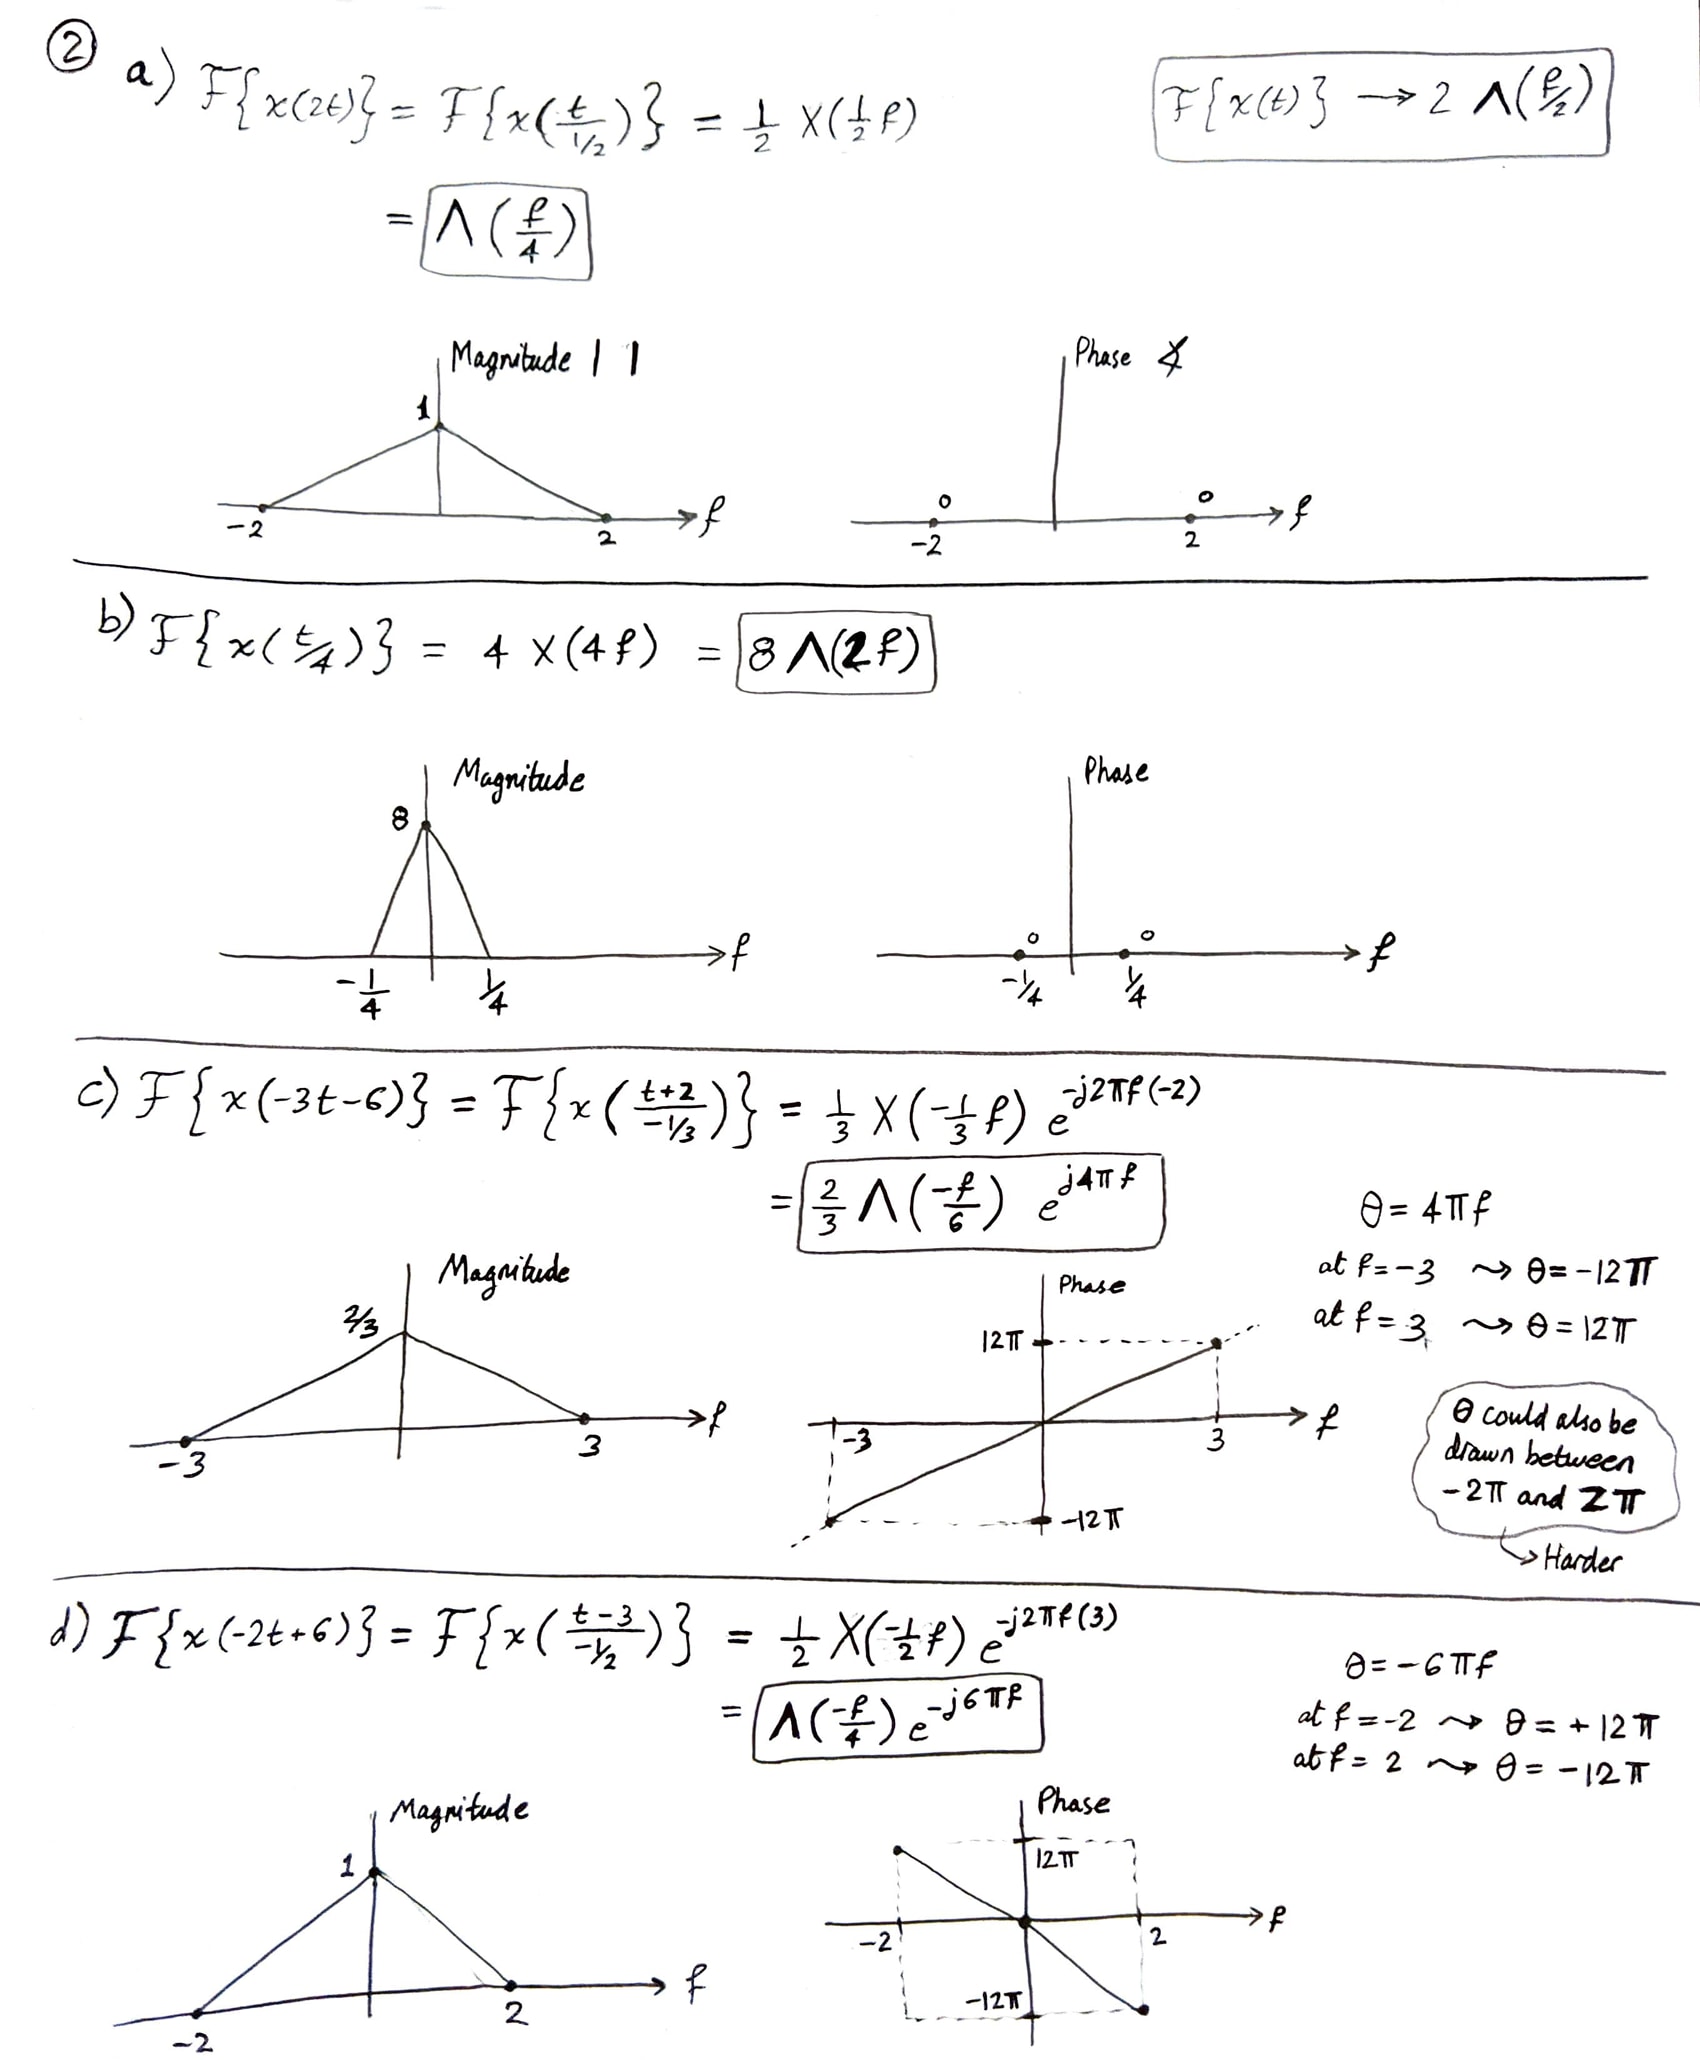 ② a) F{x(2t)} = F{x(t/1/2)} = 1/2 X(1/2 f)
F{x(t)} → 2 Λ(f/2)
= Λ(f/4)
Magnitude | |
1
-2 2 f
Phase ∡
0 0
-2 2 f
b) F{x(t/4)} = 4 X(4f) = 8 Λ(2f)
Magnitude
8
-1/4 1/4 f
Phase
0 0
-1/4 1/4 f
c) F{x(-3t-6)} = F{x(t+2/-1/3)} = 1/3 X(-1/3 f) e^-j2πf(-2)
= 2/3 Λ(-f/6) e^j4πf
θ = 4πf
at f = -3 ⇝ θ = -12π
at f = 3 ⇝ θ = 12π
Magnitude
2/3
-3 3 f
Phase
12π
-3 3 f
-12π
θ could also be
drawn between
-2π and 2π
↳ Harder
d) F{x(-2t+6)} = F{x(t-3/-1/2)} = 1/2 X(-1/2 f) e^-j2πf(3)
= Λ(-f/4) e^-j6πf
θ = -6πf
at f = -2 ⇝ θ = +12π
at f = 2 ⇝ θ = -12π
Magnitude
1
-2 2 f
Phase
12π
-2 2 f
-12π